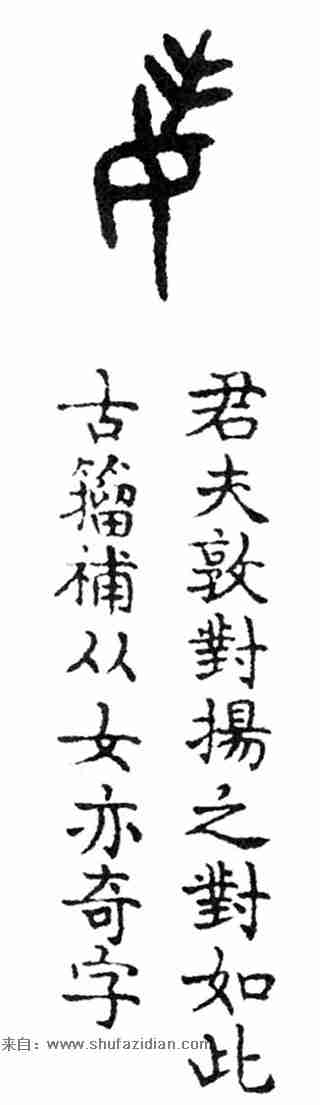 君夫敦對揚之對如此
古籀補从女亦奇字
来自：www.shufazidian.com